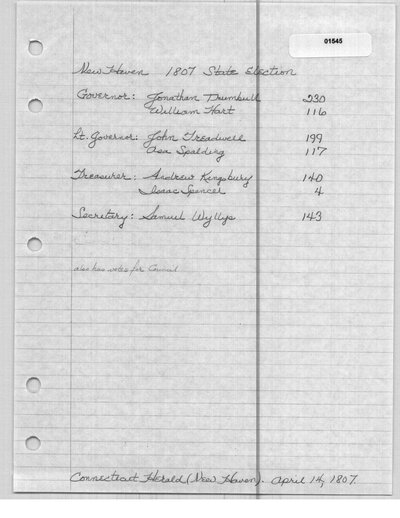 01545
New Haven 1807 State Election
Governor: Jonathan Trumbull 230
William Hart 116
Lt. Governor: John Treadwell 199
Asa Spalding 117
Treasurer: Andrew Kingsbury 140
Isaac Spencer 4
Secretary: Samuel Wyllys 143
also has votes for Council
Connecticut Herald (New Haven). April 14, 1807.